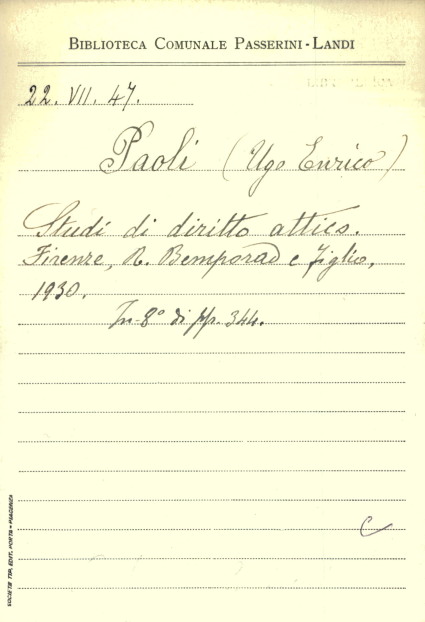 BIBLIOTECA COMUNALE PASSERINI-LANDI
22. VII. 47.
Paoli (Ugo Enrico)
Studi di diritto attico.
Firenze, R. Bemporad e Figlio,
1930.
In-8° di pp. 344.
C
SOCIETÀ TIP. EDIT. PORTA - PIACENZA